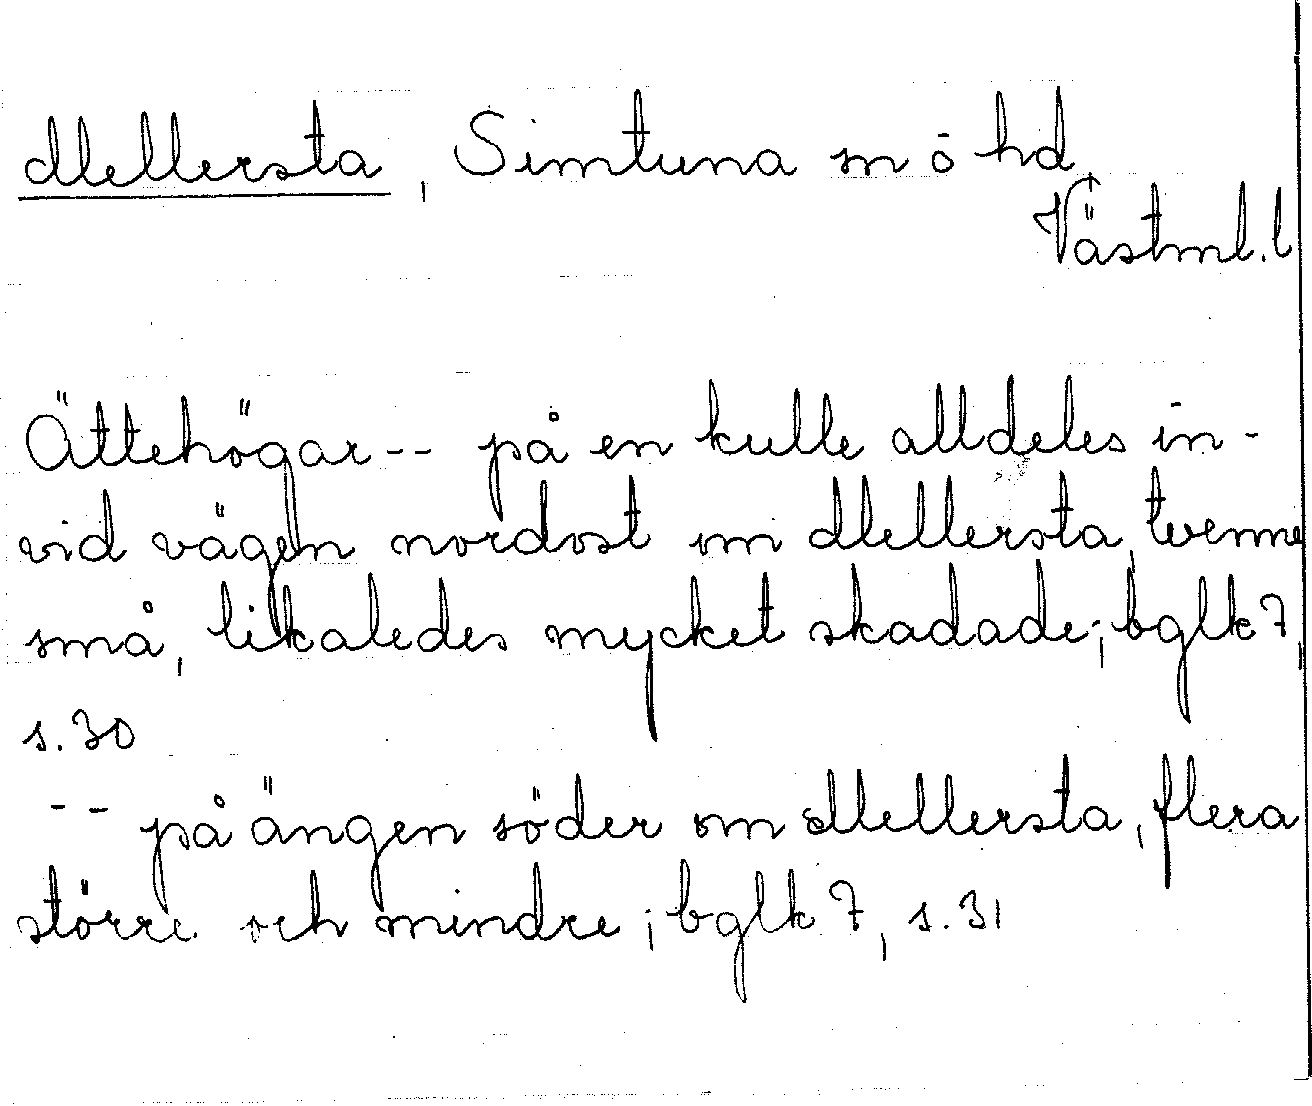 Mellersta, Simtuna sn ö hd,
Västml. l
Ättehögar -- på en kulle alldeles in-
vid vägen nordost om Mellersta, tvenne
små, likaledes mycket skadade; bglk 7,
s. 30
-- på ängen söder om Mellersta, flera
större och mindre; bglk 7, s. 31